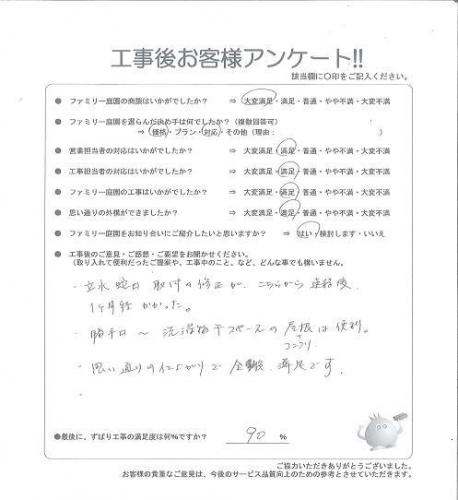 工事後お客様アンケート!!
該当欄に○印をご記入ください。
● ファミリー庭園の商談はいかがでしたか? ⇒ 大変満足・満足・普通・やや不満・大変不満
● ファミリー庭園を選らんだ決め手は何でしたか?(複数回答可)
⇒ 価格・プラン・対応・その他(理由: )
● 営業担当者の対応はいかがでしたか? ⇒ 大変満足・満足・普通・やや不満・大変不満
● 工事担当者の対応はいかがでしたか? ⇒ 大変満足・満足・普通・やや不満・大変不満
● ファミリー庭園の工事はいかがでしたか? ⇒ 大変満足・満足・普通・やや不満・大変不満
● 思い通りの外構ができましたか? ⇒ 大変満足・満足・普通・やや不満・大変不満
● ファミリー庭園をお知り合いにご紹介したいと思いますか? ⇒ はい・検討します・いいえ
● 工事後のご意見・ご感想・ご要望をお聞かせください。
(取り入れて便利だったご提案や、工事中のこと、など、どんな事でも構いません。
・立水蛇口 取付の修正が、こちらから連絡後、
1ヶ月程かかった。
・勝手口 ~ 洗濯物干スペースの屋根は便利。
・思い通りの仕上がりで 全般 満足です。
●最後に、ずばり工事の満足度は何%ですか? 90 %
ご協力いただきありがとうございました。
お客様の貴重なご意見は、今後のサービス品質向上のための参考とさせていただきます。